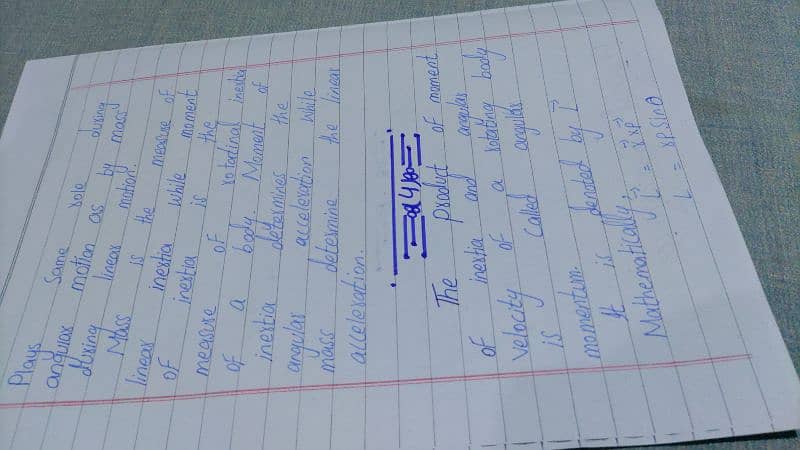 Plays same role during
angular motion as by mass
during linear motion.
Mass is the measure of
linear inertia while moment
of inertia is the
measure of rotational inertia
of a body. Moment of
inertia determines the
angular acceleration while
mass determine the linear
acceleration.
Q4
The product of moment
of inertia and angular
velocity of a rotating body
is called angular
momentum.
It is denoted by L⃗
Mathematically;
L⃗ = r⃗ x p⃗
L = rp sinθ